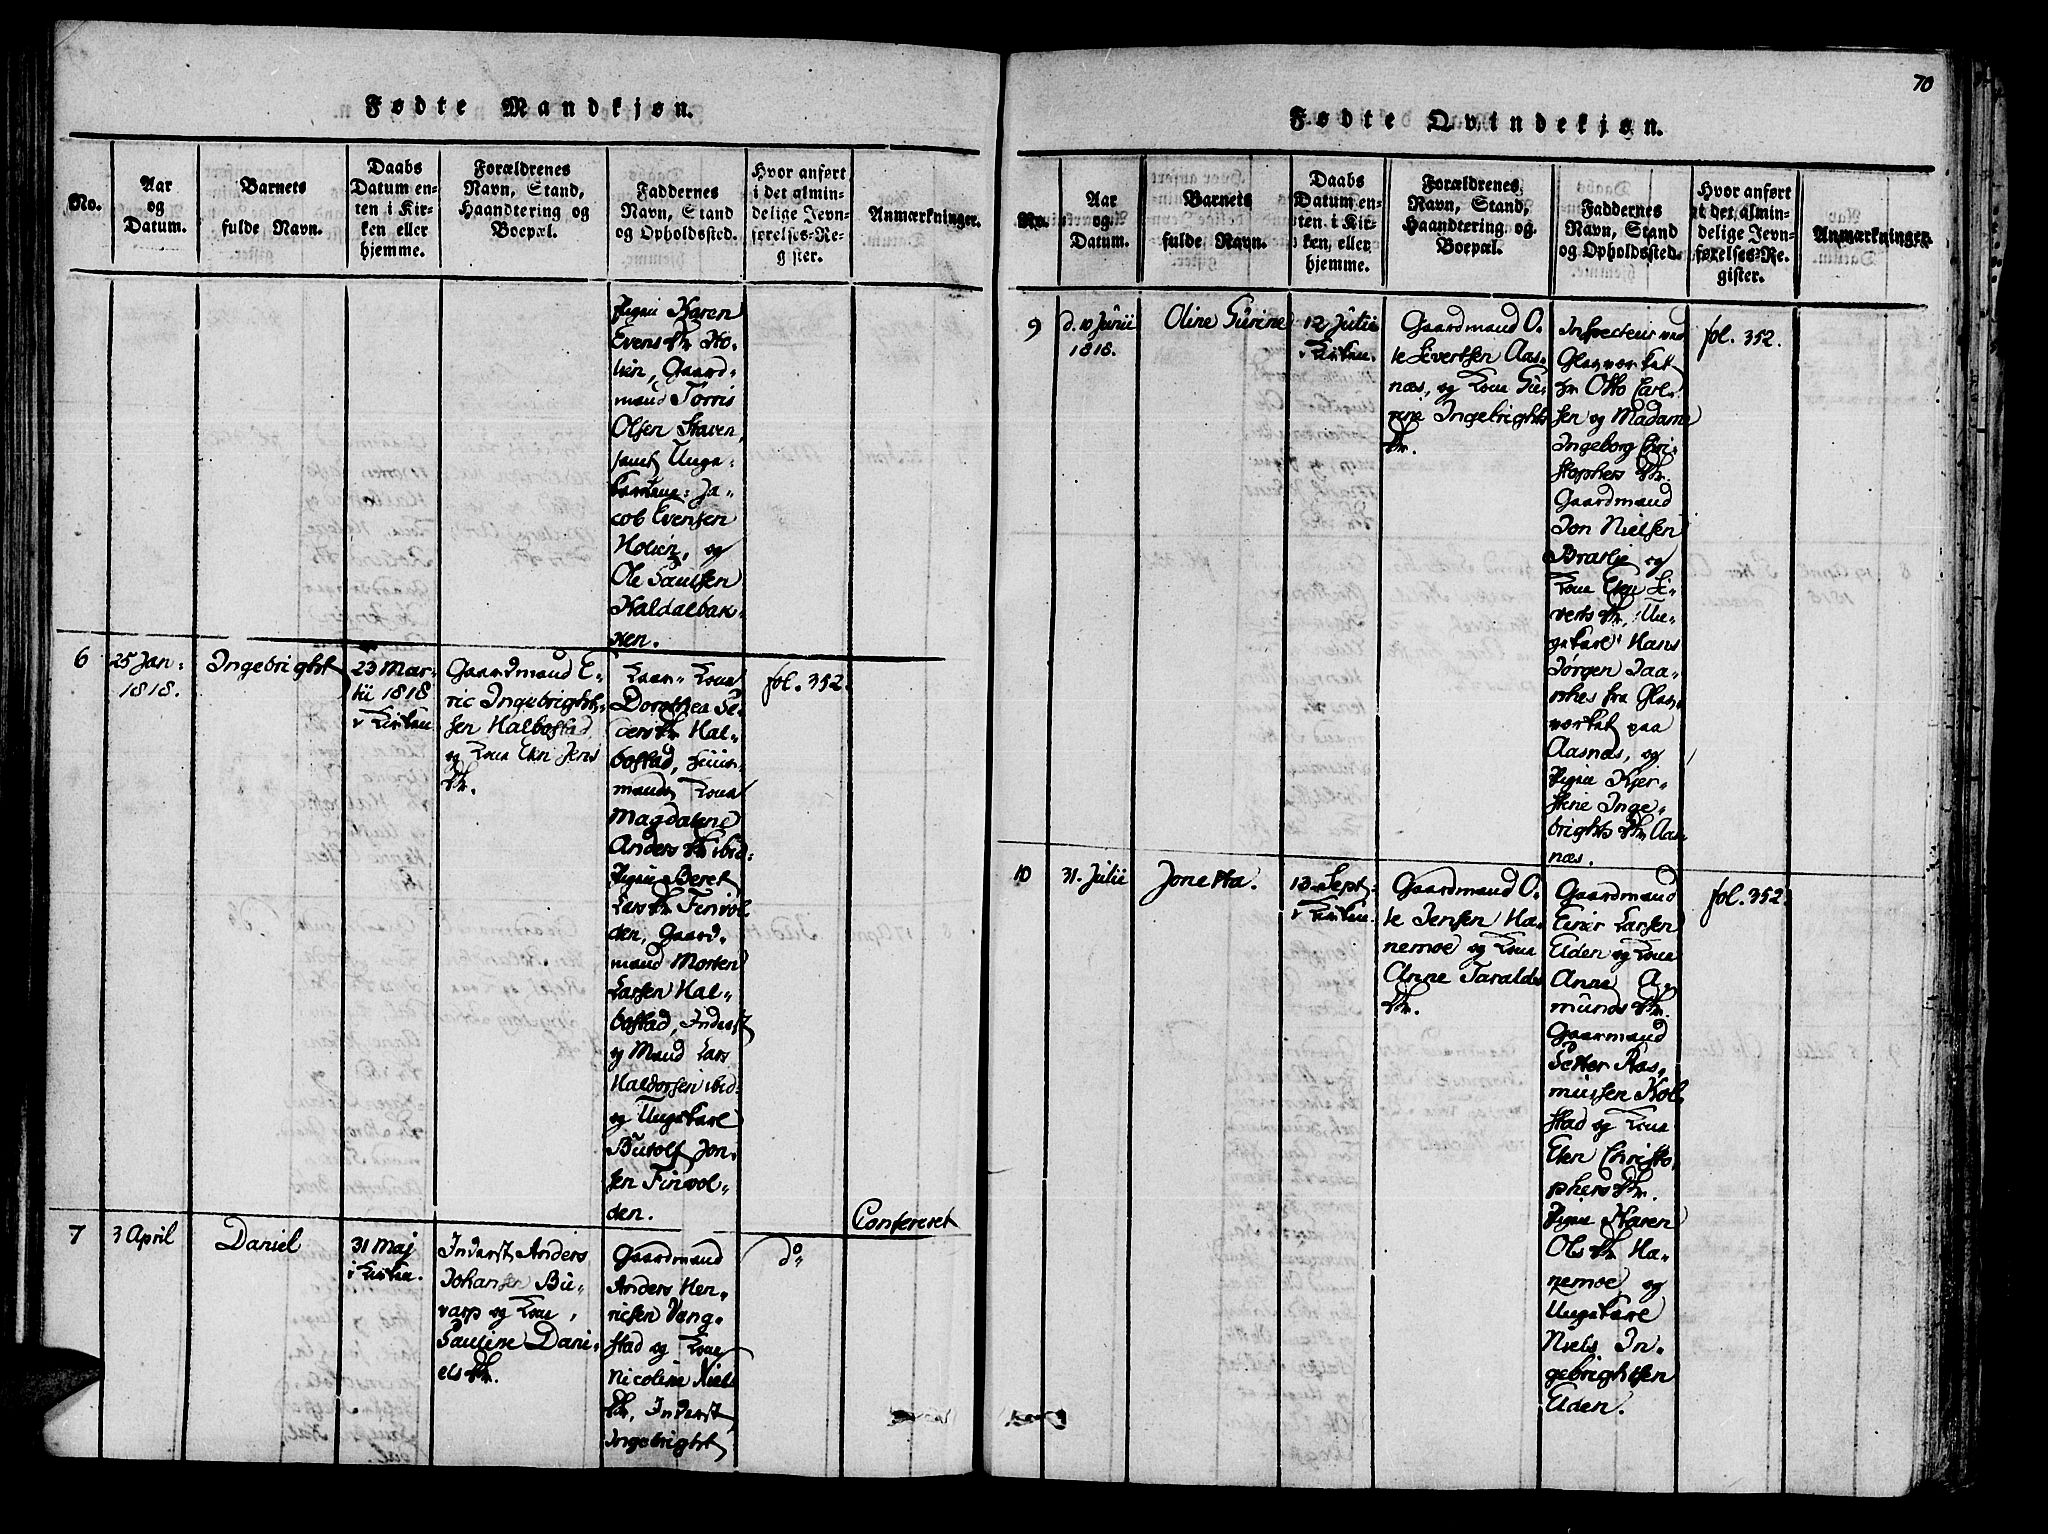 Fødte Mandkjøn.
No.
Aar
og
Datum.
Barnets
fulde Navn.
Daabs
Datum en-
ten i Kir-
ken eller
hjemme.
Forældrenes
Navn, Stand,
Haandtering og
Boepæl.
Faddernes
Navn, Stand
og Opholdssted.
Hvor anført
i det almin-
delige Jevn-
førelses-Re-
gister.
Anmærkninger.
Pigen Karen
Evens Dtr Ho-
lien, Gaard-
mand Torris
Olsen Staven,
samt Unge-
karlene: Ja-
cob Evensen
Holien, og
Ole Paulsen
Haldalbak-
ken.
6
25 Jan-
1818.
Ingebright
23 Mar-
tii 1818
i Kirken
Gaardmand E-
ric Ingebrights-
sen Halbostad,
og Kone Elen Jens
Dtr.
Kaar-Kone
Dorothea Pe-
ders Dtr Hal-
bostad, Huus-
mands Kone
Magdalene
Anders Dtr ibid-
Pigen Beret
Lars Dtr Finvol
den, Gaard-
mand Morten
Larsen Hal-
bostad, Inderst
og Mand Lars
Haldorsen ibid-
og Ungekarl
Botolf Jon-
sen Finvol-
den.
fol. 352.
7
3 April
Daniel
31 Maj
i Kirken.
Inderst Anders
Johansen Bu-
varp og Kone,
Pauline Dani-
els Dtr.
Gaardmand
Anders Hen-
ricsen Vang-
stad og Kone
Nicoline Niels
Dtr, Inderst
Ingebright
do
Confereret
70
Fødte Qvindekjøn.
No.
Aar
og
Datum.
Barnets
fulde Navn.
Daabs
Datum en-
ten i Kir-
ken, eller
hjemme.
Forældrenes
Navn, Stand,
Haandtering og
Boepæl.
Faddernes
Navn, Stand
og Opholdssted.
Hvor anført
i det almin-
delige Jevn-
førelses-Re-
gister.
Anmærkninger.
9
d. 10 Junii
1818.
Oline Gurine
12 Julii
i Kirken.
Gaardmand O-
le Sivertsen Aas-
næs, og Kone Gu-
rine Ingebrights
Dtr.
Inspecteur ved
Glasværket
Hr Otto Carl-
sen og Madame
Ingeborg Chri-
stophers Dtr.
Gaardmand
Jon Nielsen
Bratlje og
Kone Elen Si-
verts Dtr, Un-
gekarl Hans
Jørgen
fra Glas-
værket paa
Aasnæs, og
Pigen Kjer-
stine Inge-
brights Dtr Aas
næs.
fol. 352.
10
31. Julii
Jonetta.
13 Sept-
i Kirken.
Gaardmand O-
le Jensen Ha-
nemoe og Kone
Anne Taralds
Dtr.
Gaardmand
Einer Larsen
Elden og Kone
Anne A-
munds Dtr.
Gaarmand
Petter Ras-
mussen Kol-
stad og Kone
Elen Christo-
phers Dtr.
Pigen Karen
Ols Dtr Ha-
nemoe, og
Ungekarl
Niels In-
gebrightsen
Elden.
fol. 352.